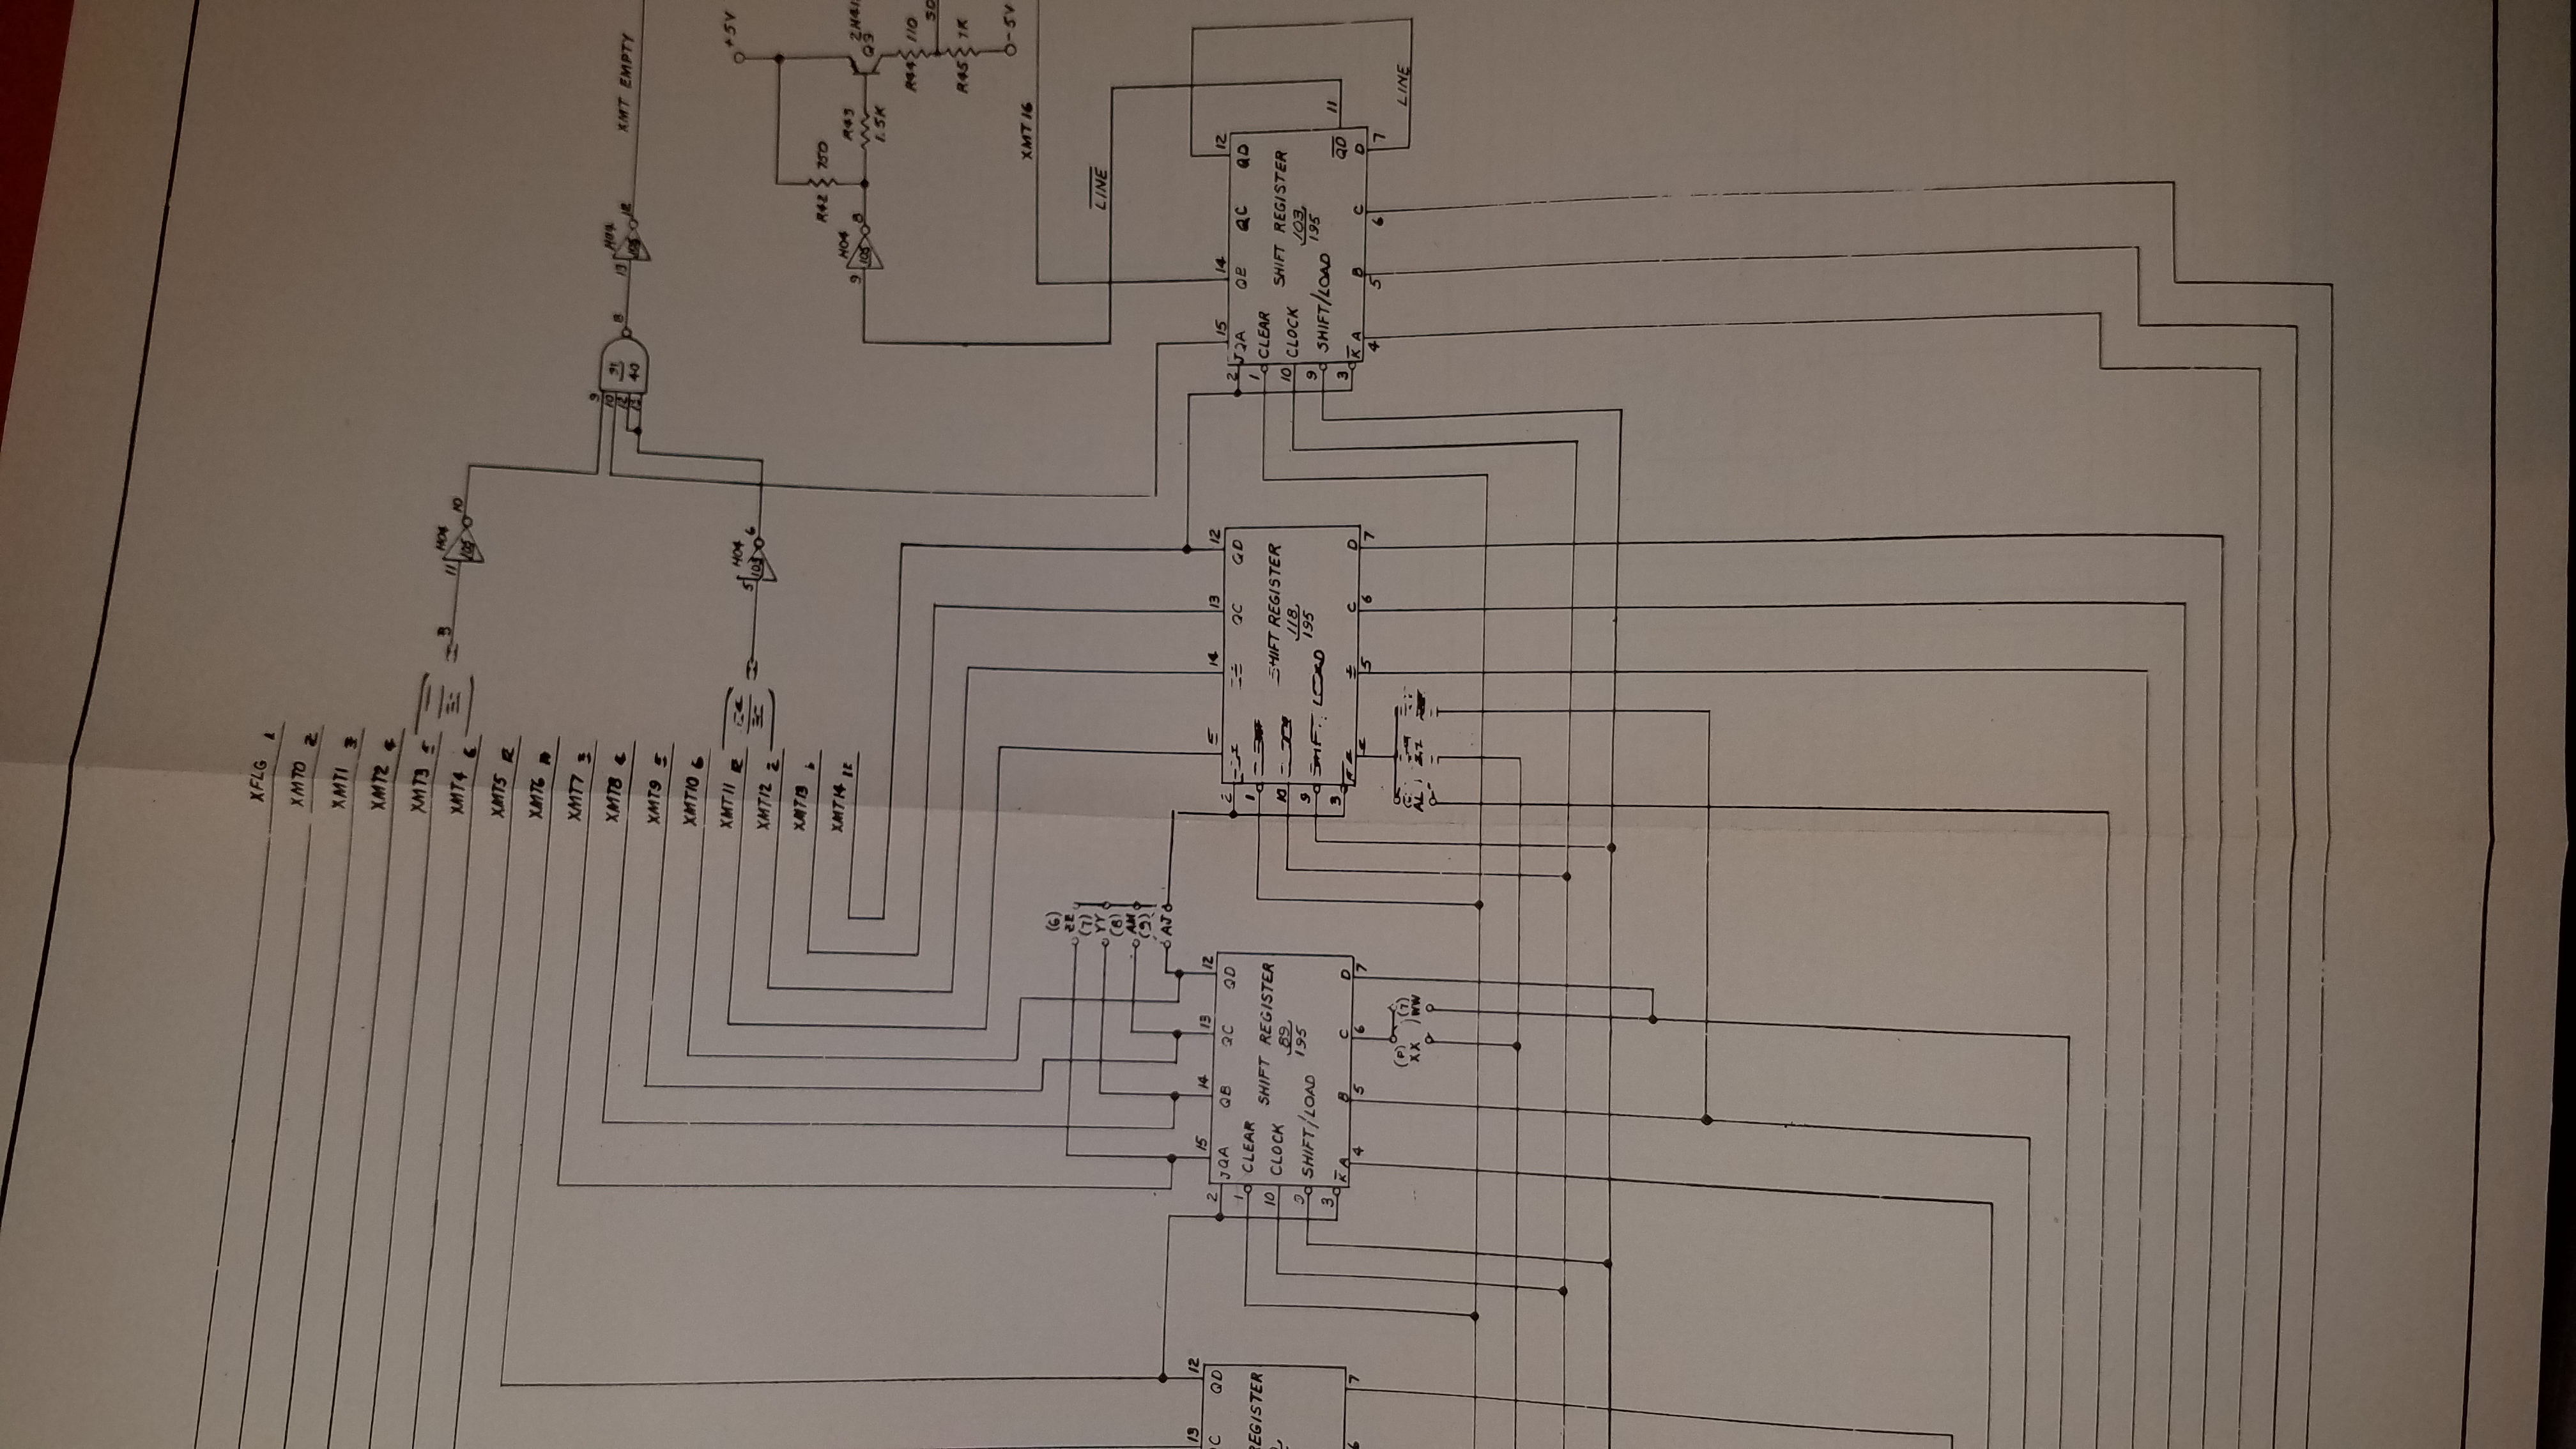 XFLG 1
XMT0 2
XMT1 3
XMT2 4
XMT3 5
XMT4 6
XMT5 12
XMT6
XMT7 3
XMT8
XMT9 5
XMT10 6
XMT11 12
XMT12 2
XMT13
XMT14
3 11 H04 105 10
9 10 12 13 91 40 8
13 H04 105 12
XMT EMPTY
5 H04 103 6
+5V
R42 750
9 H04 105 8
R43 1.5K
Q3
R44 110
R45 1K
-5V
XMT16
LINE
(6)
ZZ
(7)
YY
(8)
AM
(9)
AJ
13 12
QD
REGISTER
7
15 14 13 12
2 J QA QB QC QD
1 CLEAR
10 CLOCK
9 SHIFT/LOAD
3 K A B C D
SHIFT REGISTER
89
195
4 5 6 7
(P) (7)
XX WW
14 13 12
2 QC QD
1
10
9 SHIFT/LOAD
3 C D
SHIFT REGISTER
118
195
5 6 7
AL
15 14 12
2 J QA QB QC QD
1 CLEAR
10 CLOCK
9 SHIFT/LOAD
3 K A B C D
SHIFT REGISTER
103
195
QD 11
4 5 6 7
LINE